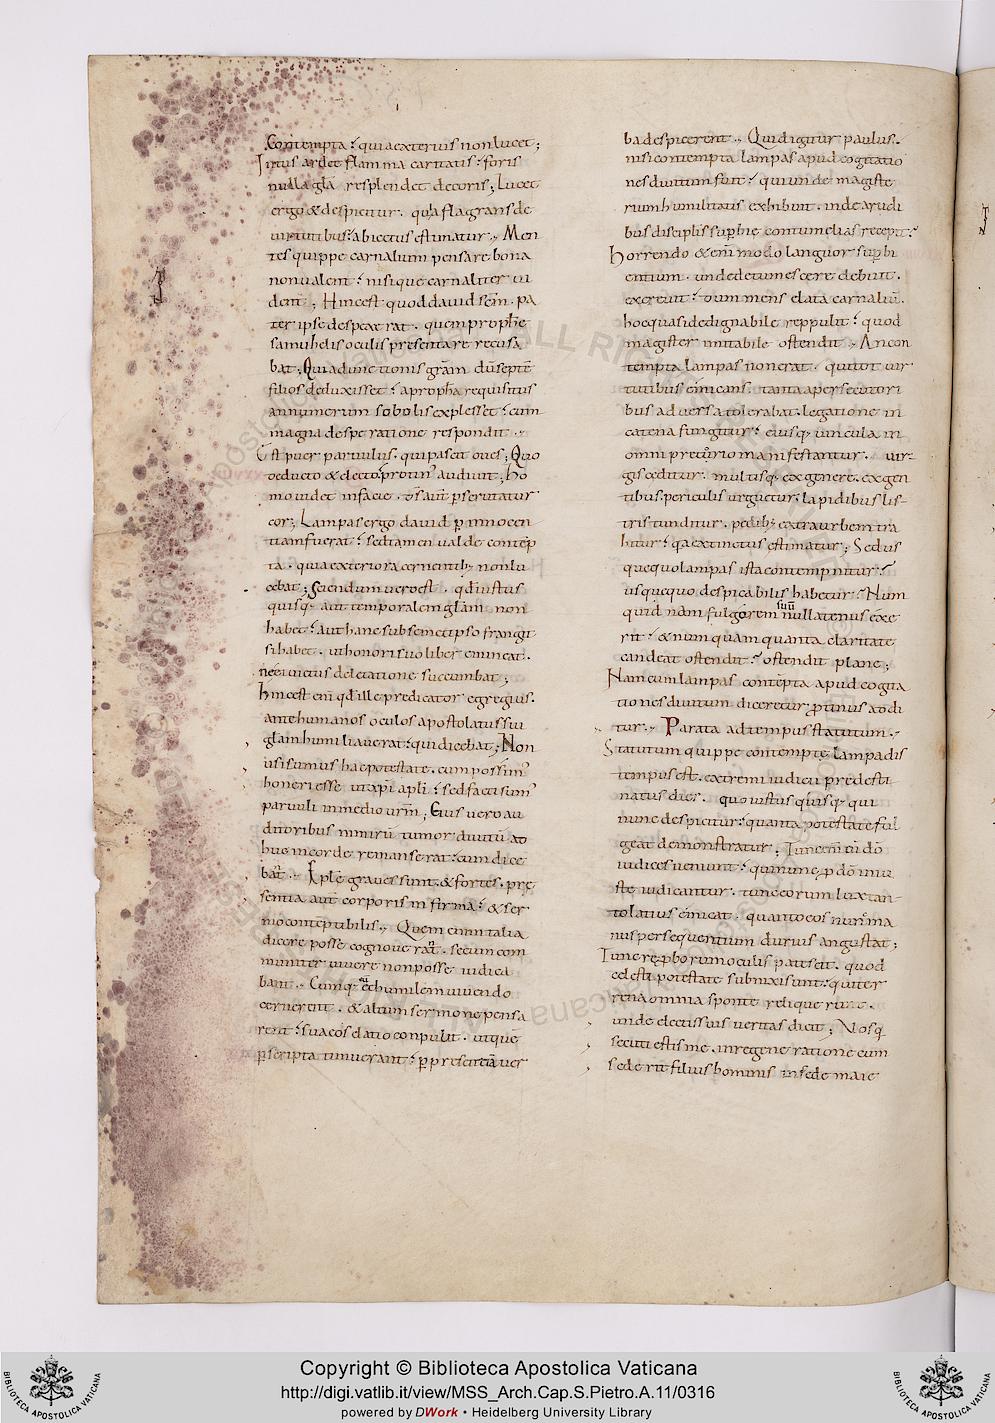 Contempta? quia exterius non lucet;
Intus ardet flamma caritatis? foris
nulla gla resplendet decoris; Lucet
ergo & despicitur. quia flagrans de
virtutibus? abiectus estimatur. Men
tes quippe carnalium pensare bona
non valent? nisi que carnaliter vi
dent; Hinc est quod david sem. pa
ter ipse despexerat. quem prophe
samuhelis oculis presentare recusa
bat; Qui ad unctionis gram du septe
filios deduxisset? a propha requisitus
an numerum sobolis explesset? cum
magna desperatione respondit.
Est puer parvulus. qui pascit oves; Quo
deducto & electo protin' audivit; Ho
mo videt in facie. ds aut perscrutatur
cor; Lampas ergo david p innocen
tiam fuerat? sed tamen valde contep
ta. quia exteriora cernentib; non lu
cebat; Sciendum vero est. qd iustus
quisq; aut temporalem glam non
habet? aut hanc sub semetipso frangit
si habet. ut honori suo liber emineat.
nec ei victus delectatione succumbat;
Hinc est eni qd ille predicator egregius.
ante humanos oculos apostolatus sui
glam humiliaverat? qui dicebat; Non
usi sumus hac potestate. cum possim'
honeri esse ut xpi apli? sed facti sum'
parvuli in medio urm; Eius vero au
ditoribus nimiru tumor divitu ad
huc in corde remanserat? cum dice
bat. Eple graves sunt. & fortes. pre
sentia aut corporis infirma? & ser
mo conteptibilis. Quem cum talia
dicere posse cognoverat. secum com
muniter vivere non posse iudica
bant. Cumq; eu & humilem vivendo
cernerent. & altum sermone pensa
rent? sua eos elatio conpulit. ut que
p scripta timuerant? p presentia ver
ba despicerent. Quid igitur paulus.
nisi contempta lampas apud cogitatio
nes divitum fuit? qui unde magiste
rium humilitatis exhibuit. inde a rudi
bus discipulis supbie contumelias recepit?
Horrendo & eni modo languor supbi
entium. unde detumescere debuit.
excrevit? dum mens elata carnaliu.
hoc quasi dedignabile reppulit? quod
magister imitabile ostendit. An con
tempta lampas non erat. qui tot vir
tutibus emicans. tanta a persecutori
bus adversa tolerabat. legatione in
catena fungitur? eiusq; vincula in
omni pretorio manifestantur. vir
gis ceditur. multisq; ex genere. ex gen
tibus. periculis urguetur. lapidibus lis
tris tunditur. pedib; extra urbem tra
hitur? qa extinctus estimatur; Sed us
que quo lampas ista contempnitur?
usquequo despicabilis habetur? Num
quidnam fulgorem suu nullatenus exe
rit? & numquam quanta claritate
candeat ostendit? ostendit plane;
Nam cum lampas contepta apud cogita
tiones divitum diceretur protinus addi
tur. Parata ad tempus statutum.
Statutum quippe contempte lampadis
tempus est. extremi iudicii predesti
natus dies. quo iustus quisq; qui
nunc despicitur? quanta potestate ful
geat demonstratur; Tunc eni cu do
iudices veniunt? qui nunc p do iniu
ste iudicantur. tunc eorum lux tan
to latius emicat. quanto eos nunc ma
nus persequentium durius angustat;
Tunc reproborum oculis patescit. quod
celesti potestate subnixi sunt? qui ter
rena omnia sponte reliquerunt.
unde electis suis veritas dicit; Vos q
secuti estis me. in regeneratione cum
sederit filius hominis in sede maie
Copyright © Biblioteca Apostolica Vaticana
http://digi.vatlib.it/view/MSS_Arch.Cap.S.Pietro.A.11/0316
powered by DWork • Heidelberg University Library